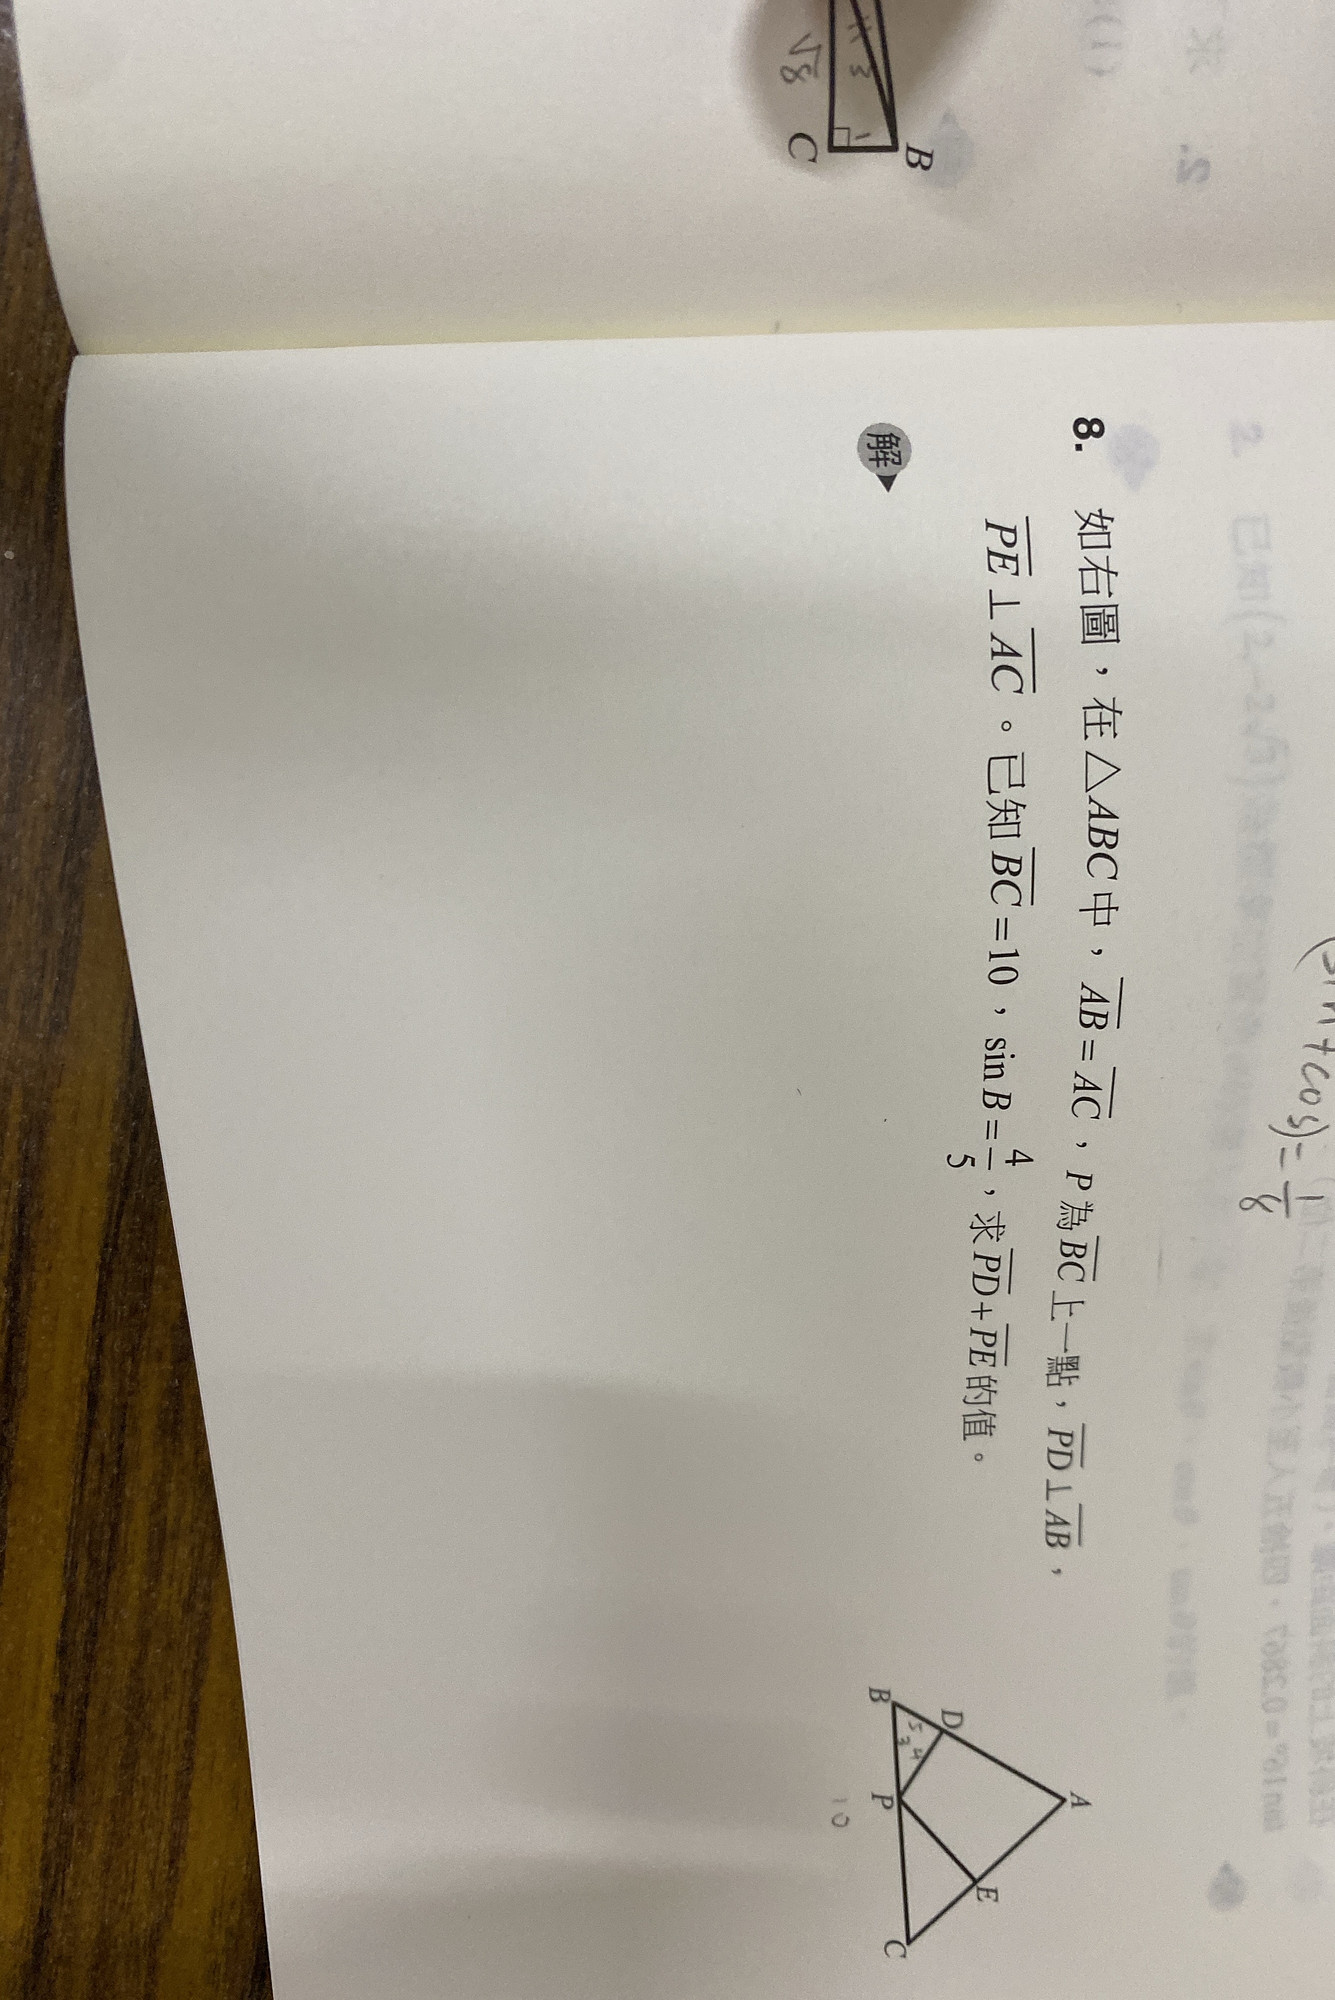 8. 如右圖，在△ABC中，AB=AC，P為BC上一點，PD⊥AB，
PE⊥AC。已知BC=10，sin B=4/5，求PD+PE的值。
解
A
D
E
5 4
3
B
P
C
10
√8
3
1
B
C
cos)=1/8